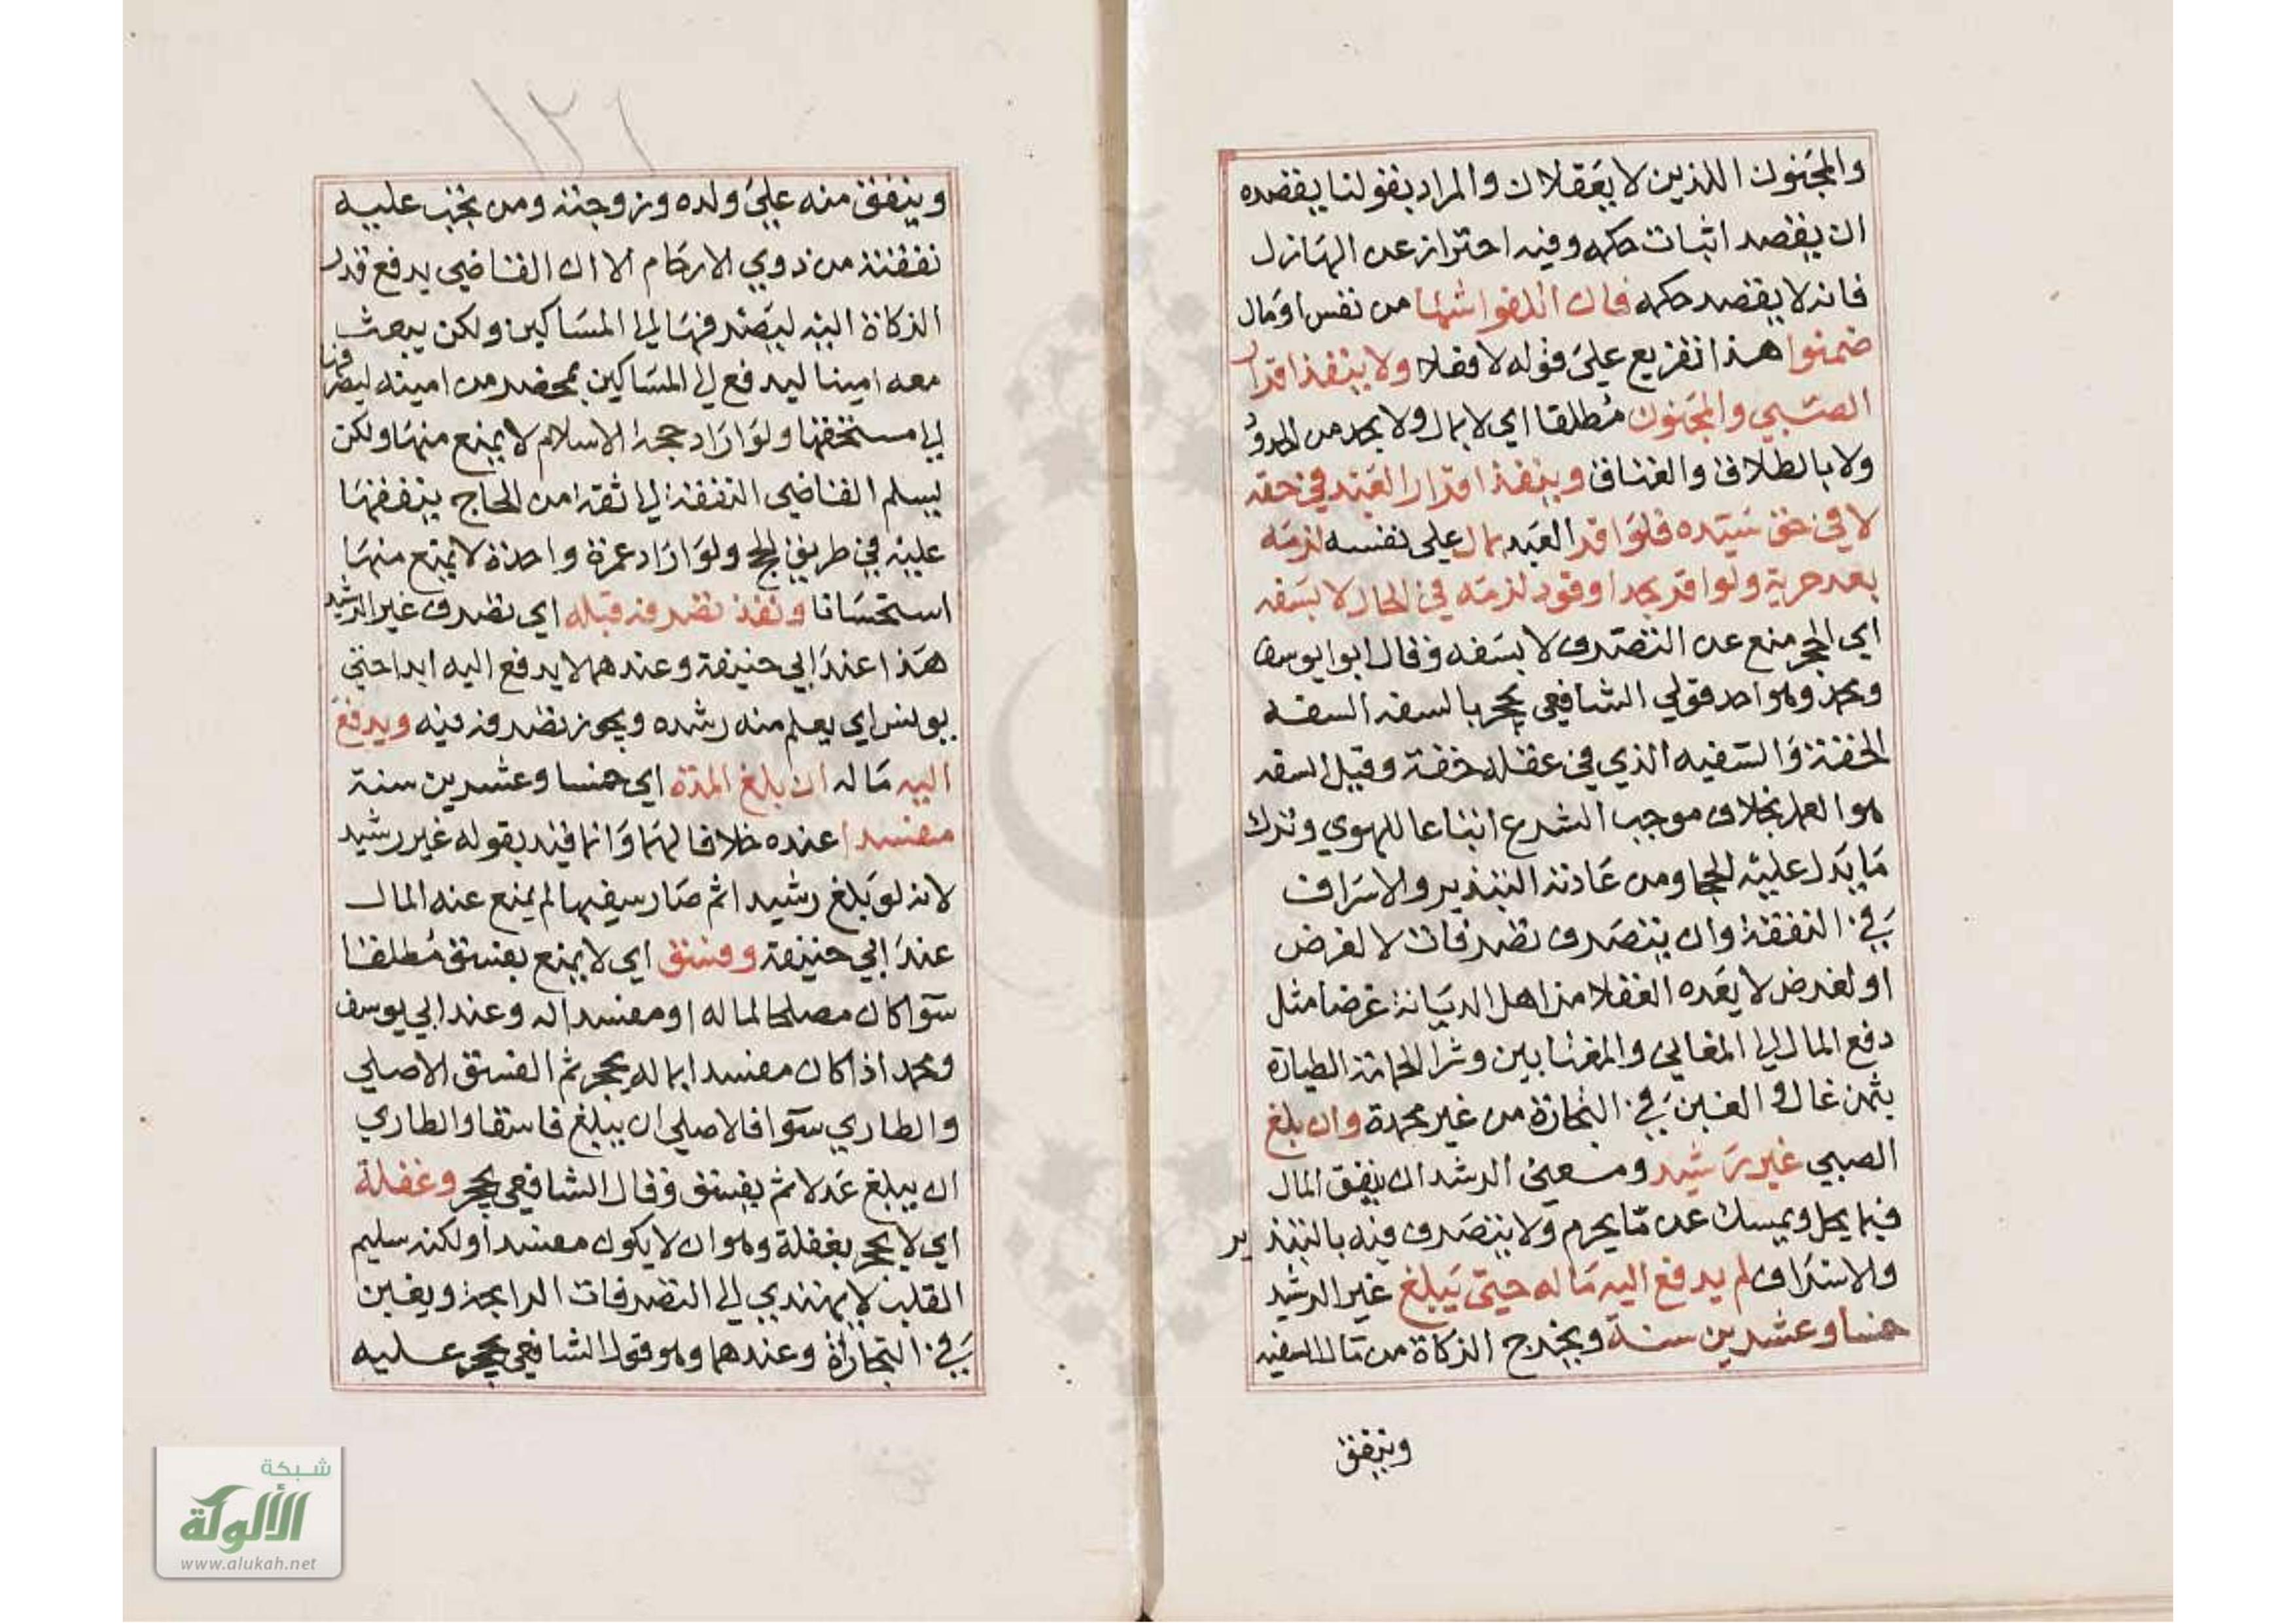 والمجنون اللذين لا يعقلان والمراد بقولنا يقصده
ان يقصد اثبات حكمه وفيه احتراز عن الهازل
فانه لا يقصد حكمه فان اتلفوا شيا من نفس او مال
ضمنوا هذا تفريع على قوله لا فعلا ولا ينفذ اقرار
الصبي والمجنون مطلقا اي لا بمال ولا بحد من الحدود
ولا بالطلاق والعتاق وينفذ اقرار العبد في حقه
لا في حق سيده فلو اقر العبد بمال على نفسه لزمه
بعد حرية ولو اقر بحد او قود لزمه في الحال لا بسفه
اي الحجر منع عن التصرف لا بسفه وقال ابوا يوسف
ومحمد وهو احد قولي الشافعي يحجر بالسفه السفه
الخفة والسفيه الذي في عقله خفة وقيل السفه
هو العمل بخلاف موجب الشرع اتباعا للهوي وترك
ما يدل عليه الحجا ومن عادته التبذير والاسراف
في النفقة وان يتصرف تصرفات لا لغرض
او لغرض لا يعده العقلا من اهل الديانة غرضا مثل
دفع المال الي المغاني والمغنابين وشرا الحمامة الطيارة
بثمن غال والغبن في التجارة من غير محمدة وان بلغ
الصبي غير رشيد ومعني الرشد ان ينفق المال
فيما يحل ويمسك عن ما يحرم ولا يتصرف فيه بالتبذير
والاسراف لم يدفع اليه ماله حتى يبلغ غير الرشيد
خمسا وعشرين سنة ويخرج الزكاة من مال السفيه
وينفق
١٢٦
وينفق منه علي ولده وزوجته ومن يجب عليه
نفقته من ذوي الارحام الا ان القاضي يدفع قدر
الزكاة اليه ليصرفها الي المساكين ولكن يبعث
معه امينا ليدفع الي المساكين بمحضر من امينه ليصرفها
الي مستحقها ولو اراد حجة الاسلام لا يمنع منها ولكن
يسلم القاضي النفقة الي ثقة من الحاج ينفقها
عليه في طريق الحج ولو اراد عمرة واحدة لا يمنع منها
استحسانا ونفذ تصرفه قبله اي تصرف غير الرشيد
هذا عند ابي حنيفة وعندهما لا يدفع اليه ابدا حتي
يونس اي يعلم منه رشده ويجوز تصرفه فيه ويدفع
اليه ماله ان بلغ المدة اي خمسا وعشرين سنة
مفسدا عنده خلافا لهما وانما قيد بقوله غير رشيد
لانه لو بلغ رشيدا ثم صار سفيها لم يمنع عنه المال
عند ابي حنيفة وفسق اي لا يمنع بفسق مطلقا
سوا كان مصلحا لماله او مفسدا له وعند ابي يوسف
ومحمد اذا كان مفسدا بماله يحجر ثم الفسق الاصلي
والطاري سوا فالاصلي ان يبلغ فاسقا والطاري
ان يبلغ عدلا ثم يفسق وقال الشافعي يحجر وغفلة
اي لا يحجر بغفلة وهو ان لا يكون مفسدا ولكنه سليم
القلب لا يهتدي الي التصرفات الرابحة ويغبن
في التجاراة وعندهما وهو قول الشافعي يحجر عليه
شبكة
الألوكة
www.alukah.net